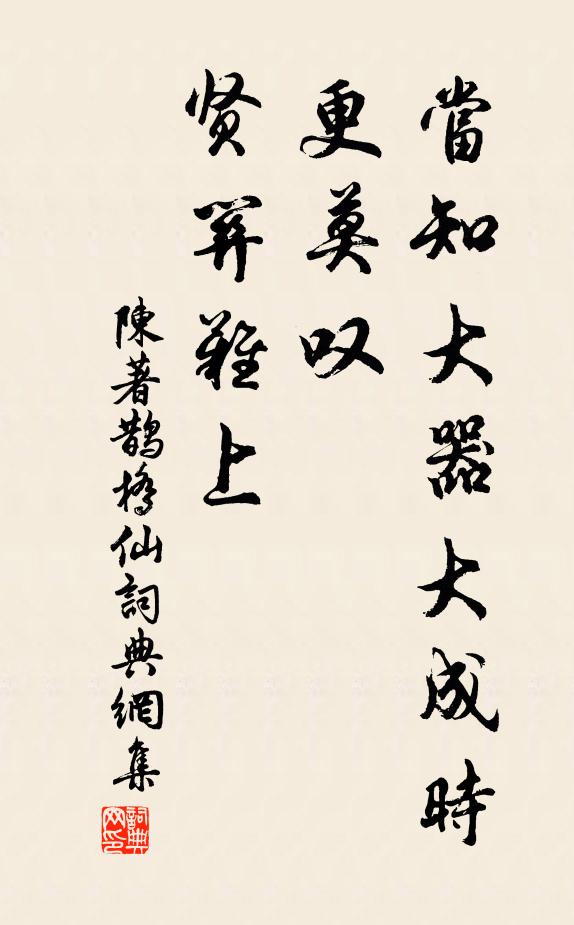 當知大器大成時
更莫叹
贤關難上
陳著鵲橋仙詞典網集
詞典网印